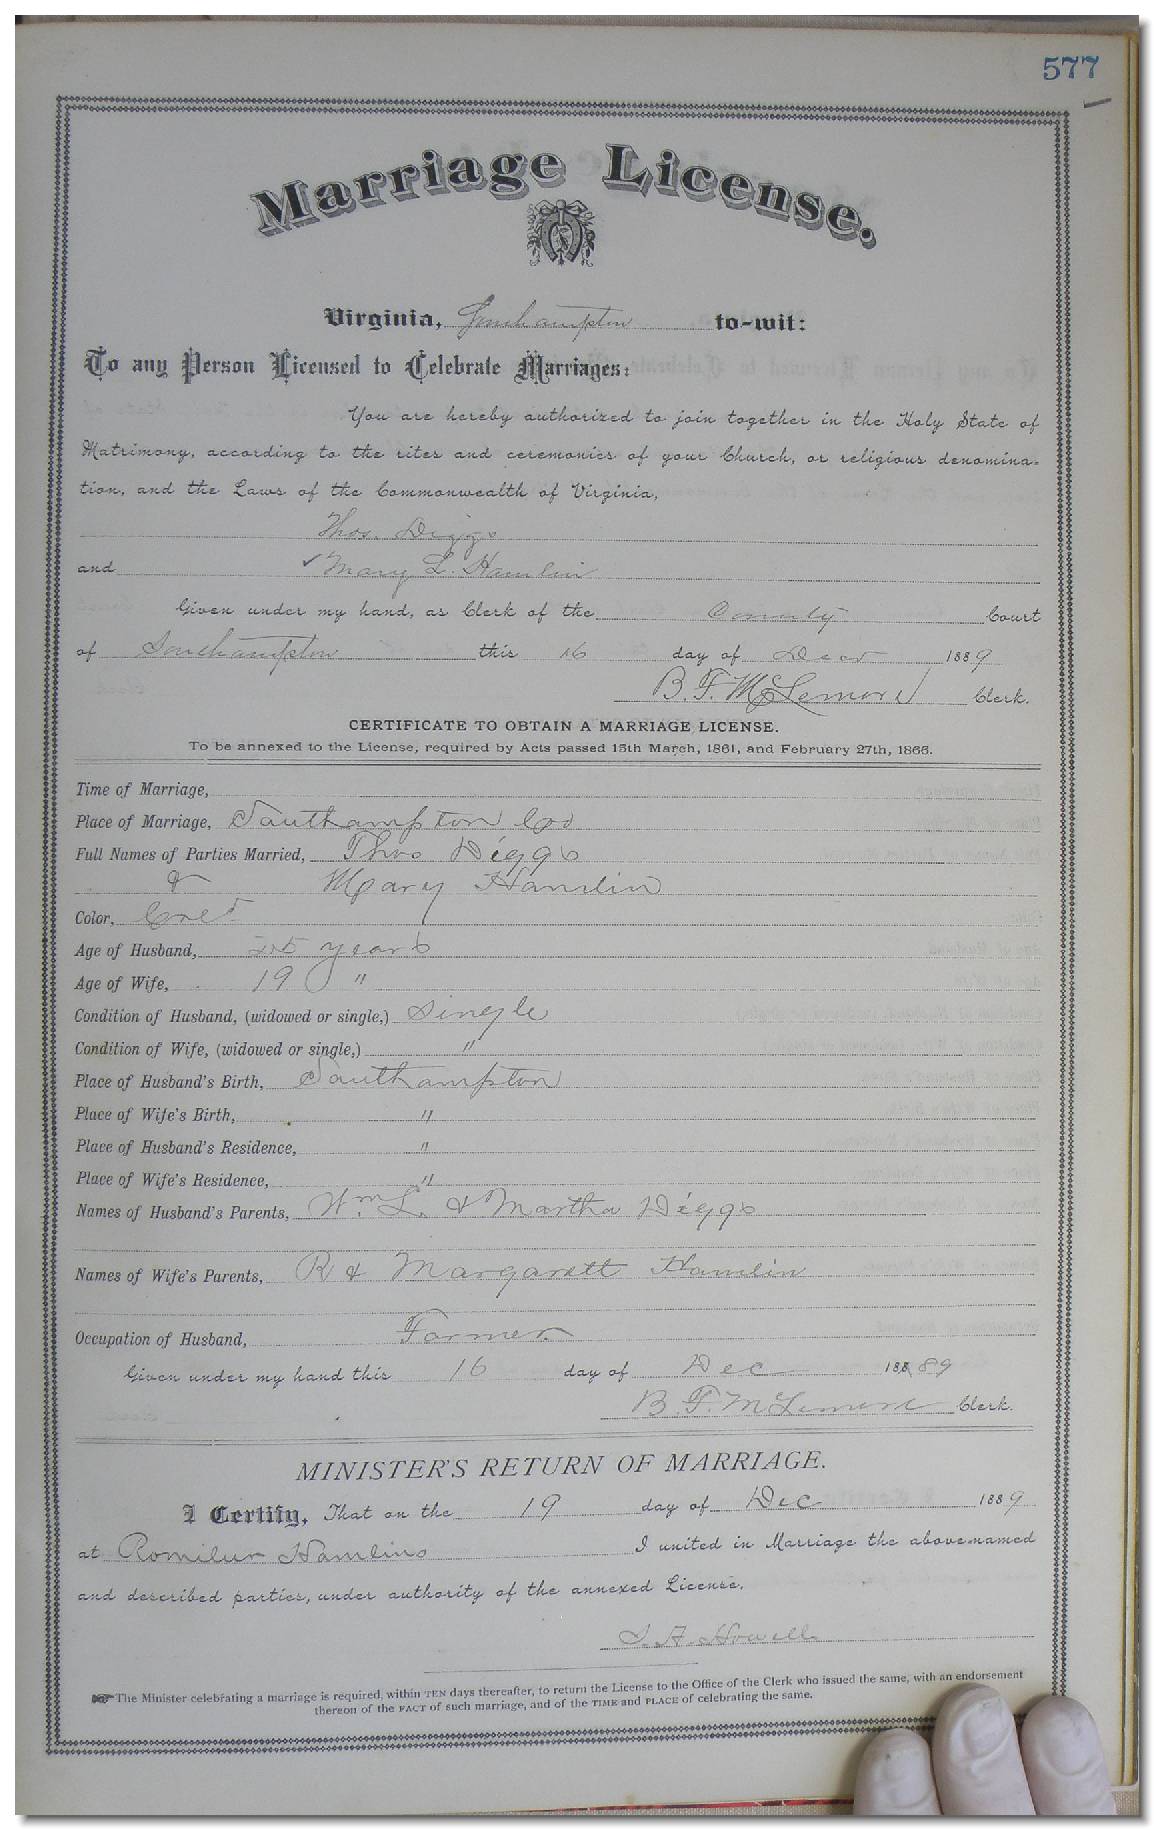 577
Marriage License.
Virginia, Southampton to-wit:
To any Person Licensed to Celebrate Marriages:
You are hereby authorized to join together in the Holy State of
Matrimony, according to the rites and ceremonies of your Church, or religious denomina-
tion, and the Laws of the Commonwealth of Virginia,
Thos. Diggs
and Mary L. Hamlin
Given under my hand, as Clerk of the County Court
of Southampton this 16 day of Decr 1889
B. F. McLemore Clerk.
CERTIFICATE TO OBTAIN A MARRIAGE LICENSE.
To be annexed to the License, required by Acts passed 15th March, 1861, and February 27th, 1866.
Time of Marriage,
Place of Marriage, Southampton Co
Full Names of Parties Married, Thos Diggs
& Mary Hamlin
Color, Cold
Age of Husband, 25 years
Age of Wife, 19 "
Condition of Husband, (widowed or single,) Single
Condition of Wife, (widowed or single,) "
Place of Husband's Birth, Southampton
Place of Wife's Birth, "
Place of Husband's Residence, "
Place of Wife's Residence, "
Names of Husband's Parents, Wm L. & Martha Diggs
Names of Wife's Parents, R & Margarett Hamlin
Occupation of Husband, Farmer
Given under my hand this 16 day of Dec 18889
B. F. McLemore Clerk.
MINISTER'S RETURN OF MARRIAGE.
I Certify, That on the 19 day of Dec 1889
at Romilus Hamlins I united in Marriage the above-named
and described parties, under authority of the annexed License.
I. A. Howell
The Minister celebrating a marriage is required, within TEN days thereafter, to return the License to the Office of the Clerk who issued the same, with an endorsement
thereon of the FACT of such marriage, and of the TIME and PLACE of celebrating the same.